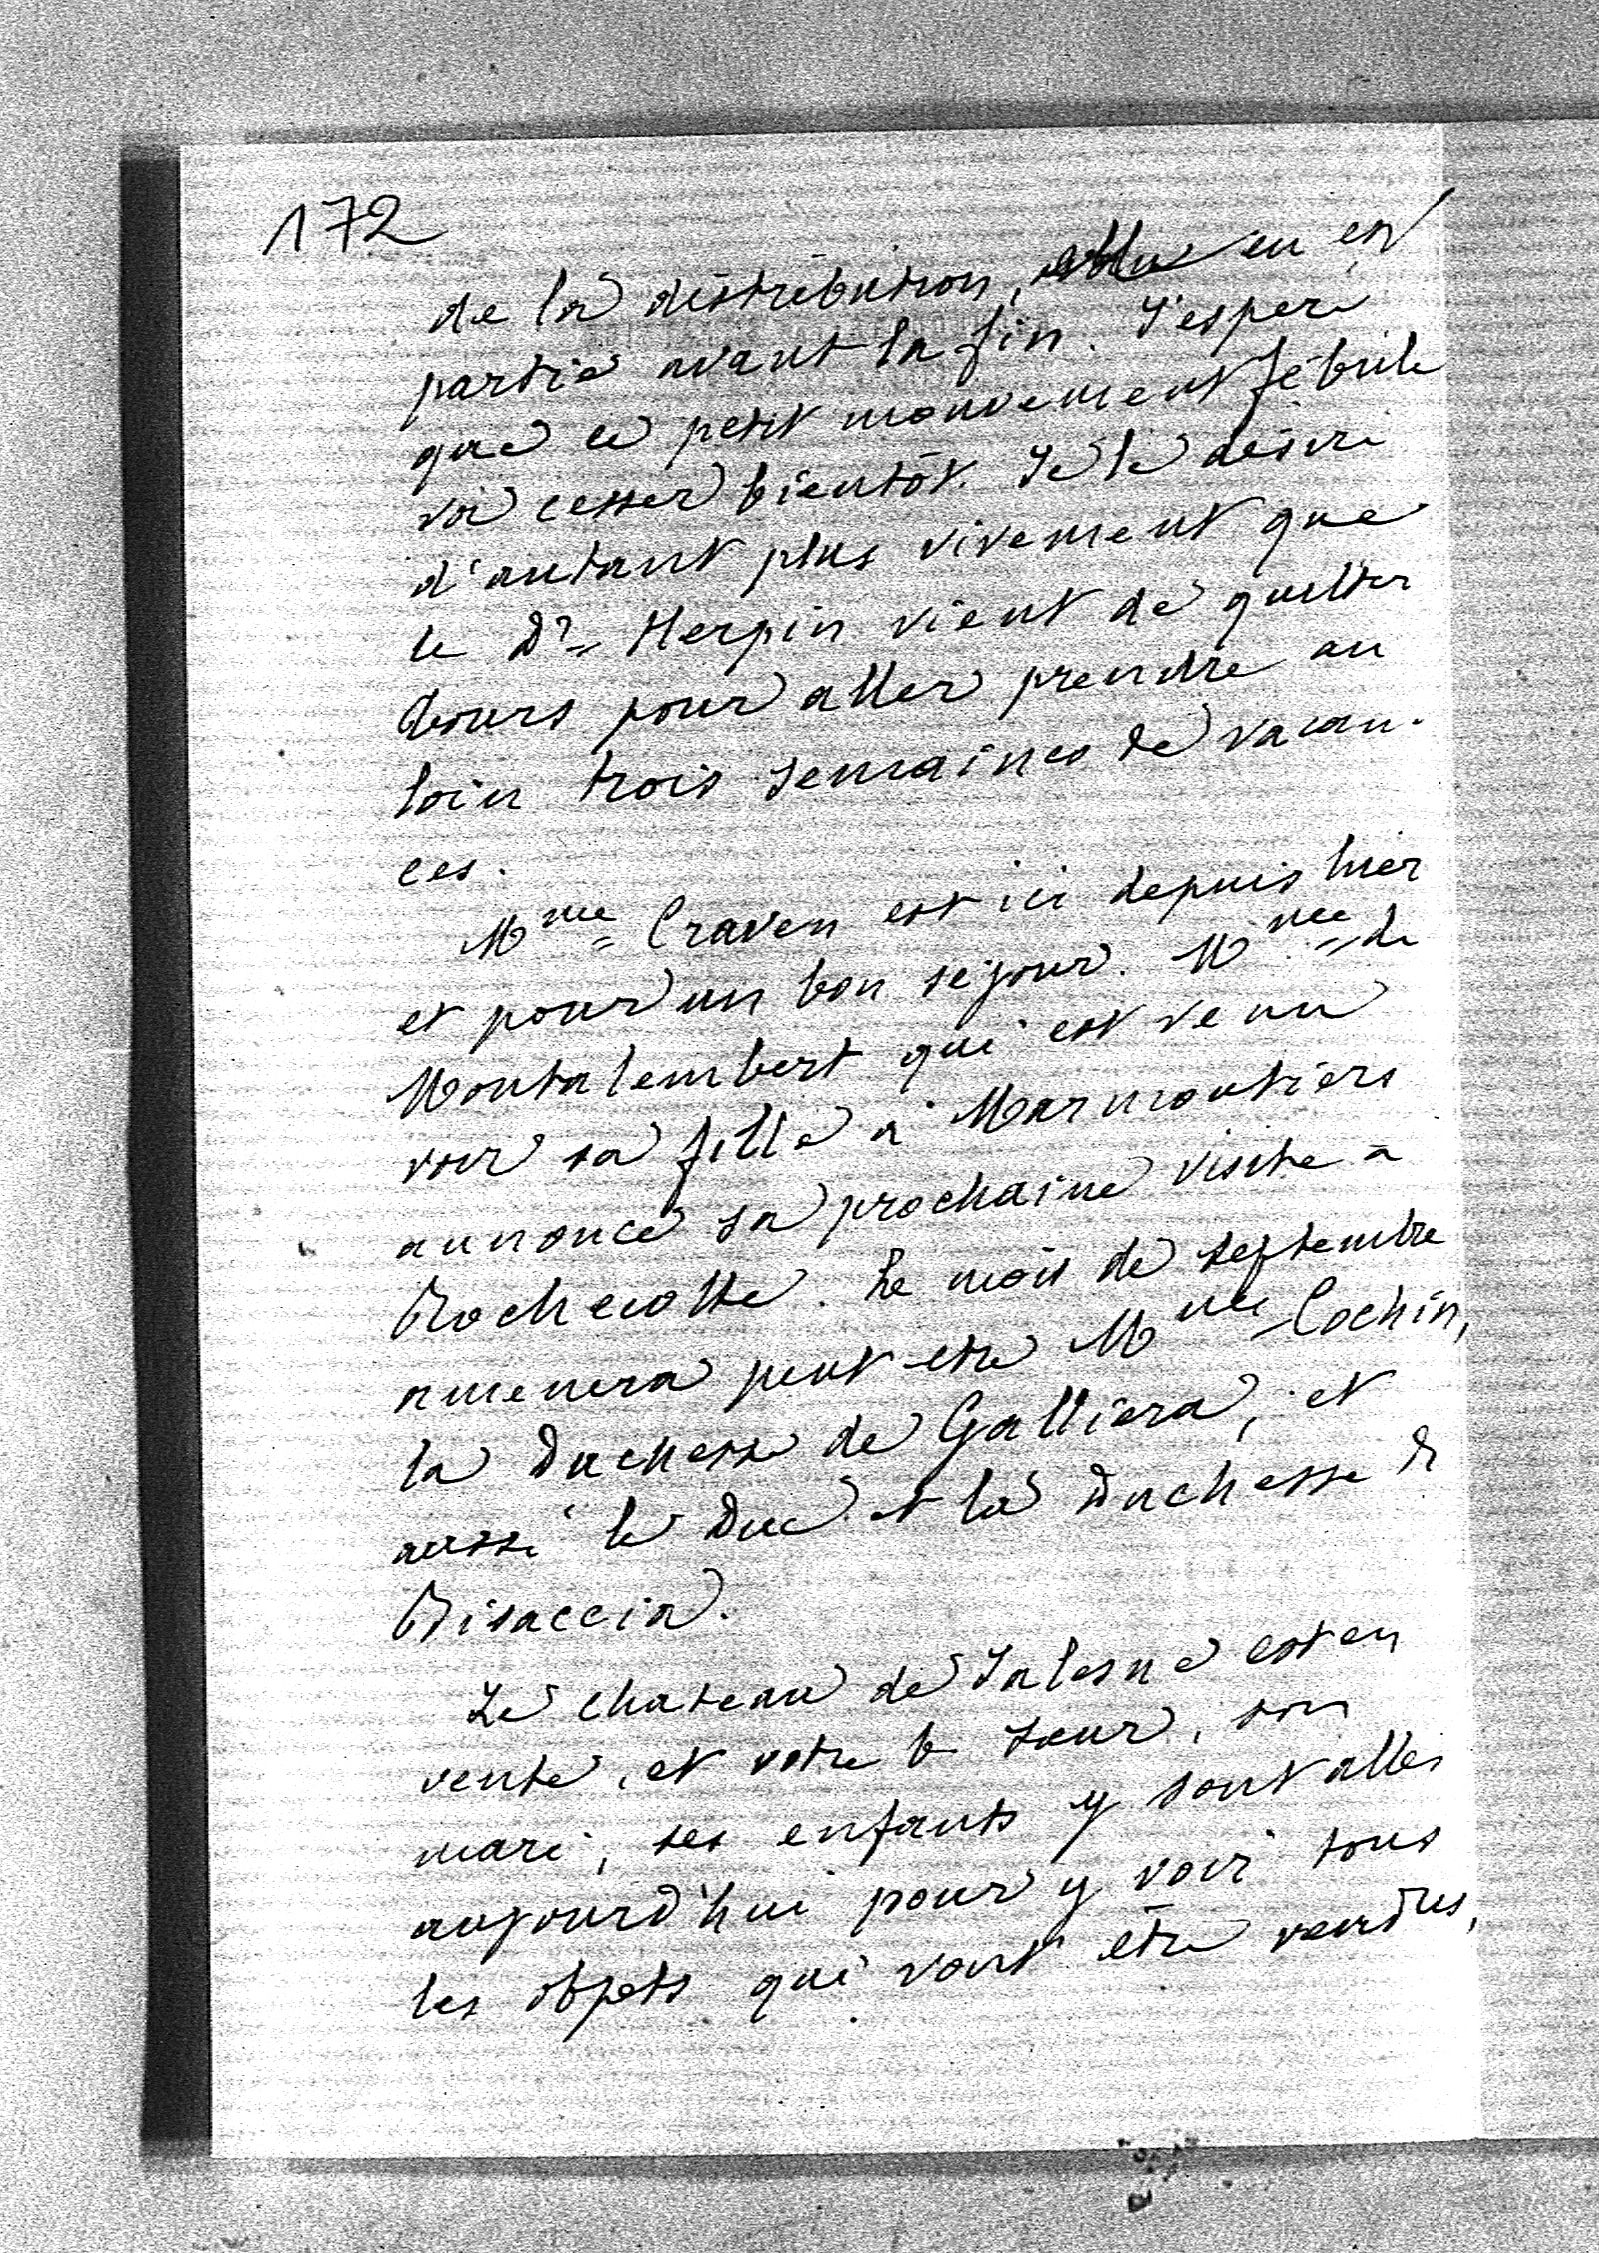 172
de la distribution, elle en est
partie avant la fin. J'espere
que ce petit mouvement fébrile
va cesser bientôt. Je le désire
d'autant plus vivement que
le Dr Herpin vient de quitter
Tours pour aller prendre au
loin trois semaines de vacan-
ces.
Mme Craven est ici depuis hier
et pour un bon séjour. Mme de
Montalembert qui est venu
voir sa fille à Marmoutiers
annonce sa prochaine visite à
Rochecotte. Le mois de septembre
amenera peut etre Mme Cochin,
la Duchesse de Galliera, et
aussi le Duc et la Duchesse de
Bisaccia.
Le chateau de Jalesne est en
vente, et votre b soeur, son
mari, ses enfants y sont allés
aujourd'hui pour y voir tous
les objets qui vont être vendus,